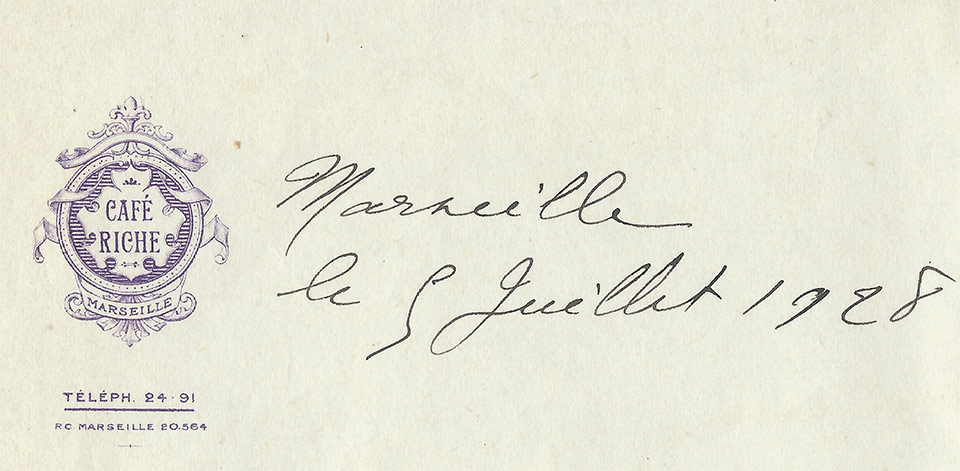 CAFÉ
RICHE
MARSEILLE
TÉLÉPH. 24·91
RC MARSEILLE 20.564
Marseille
le 5 Juillet 1928